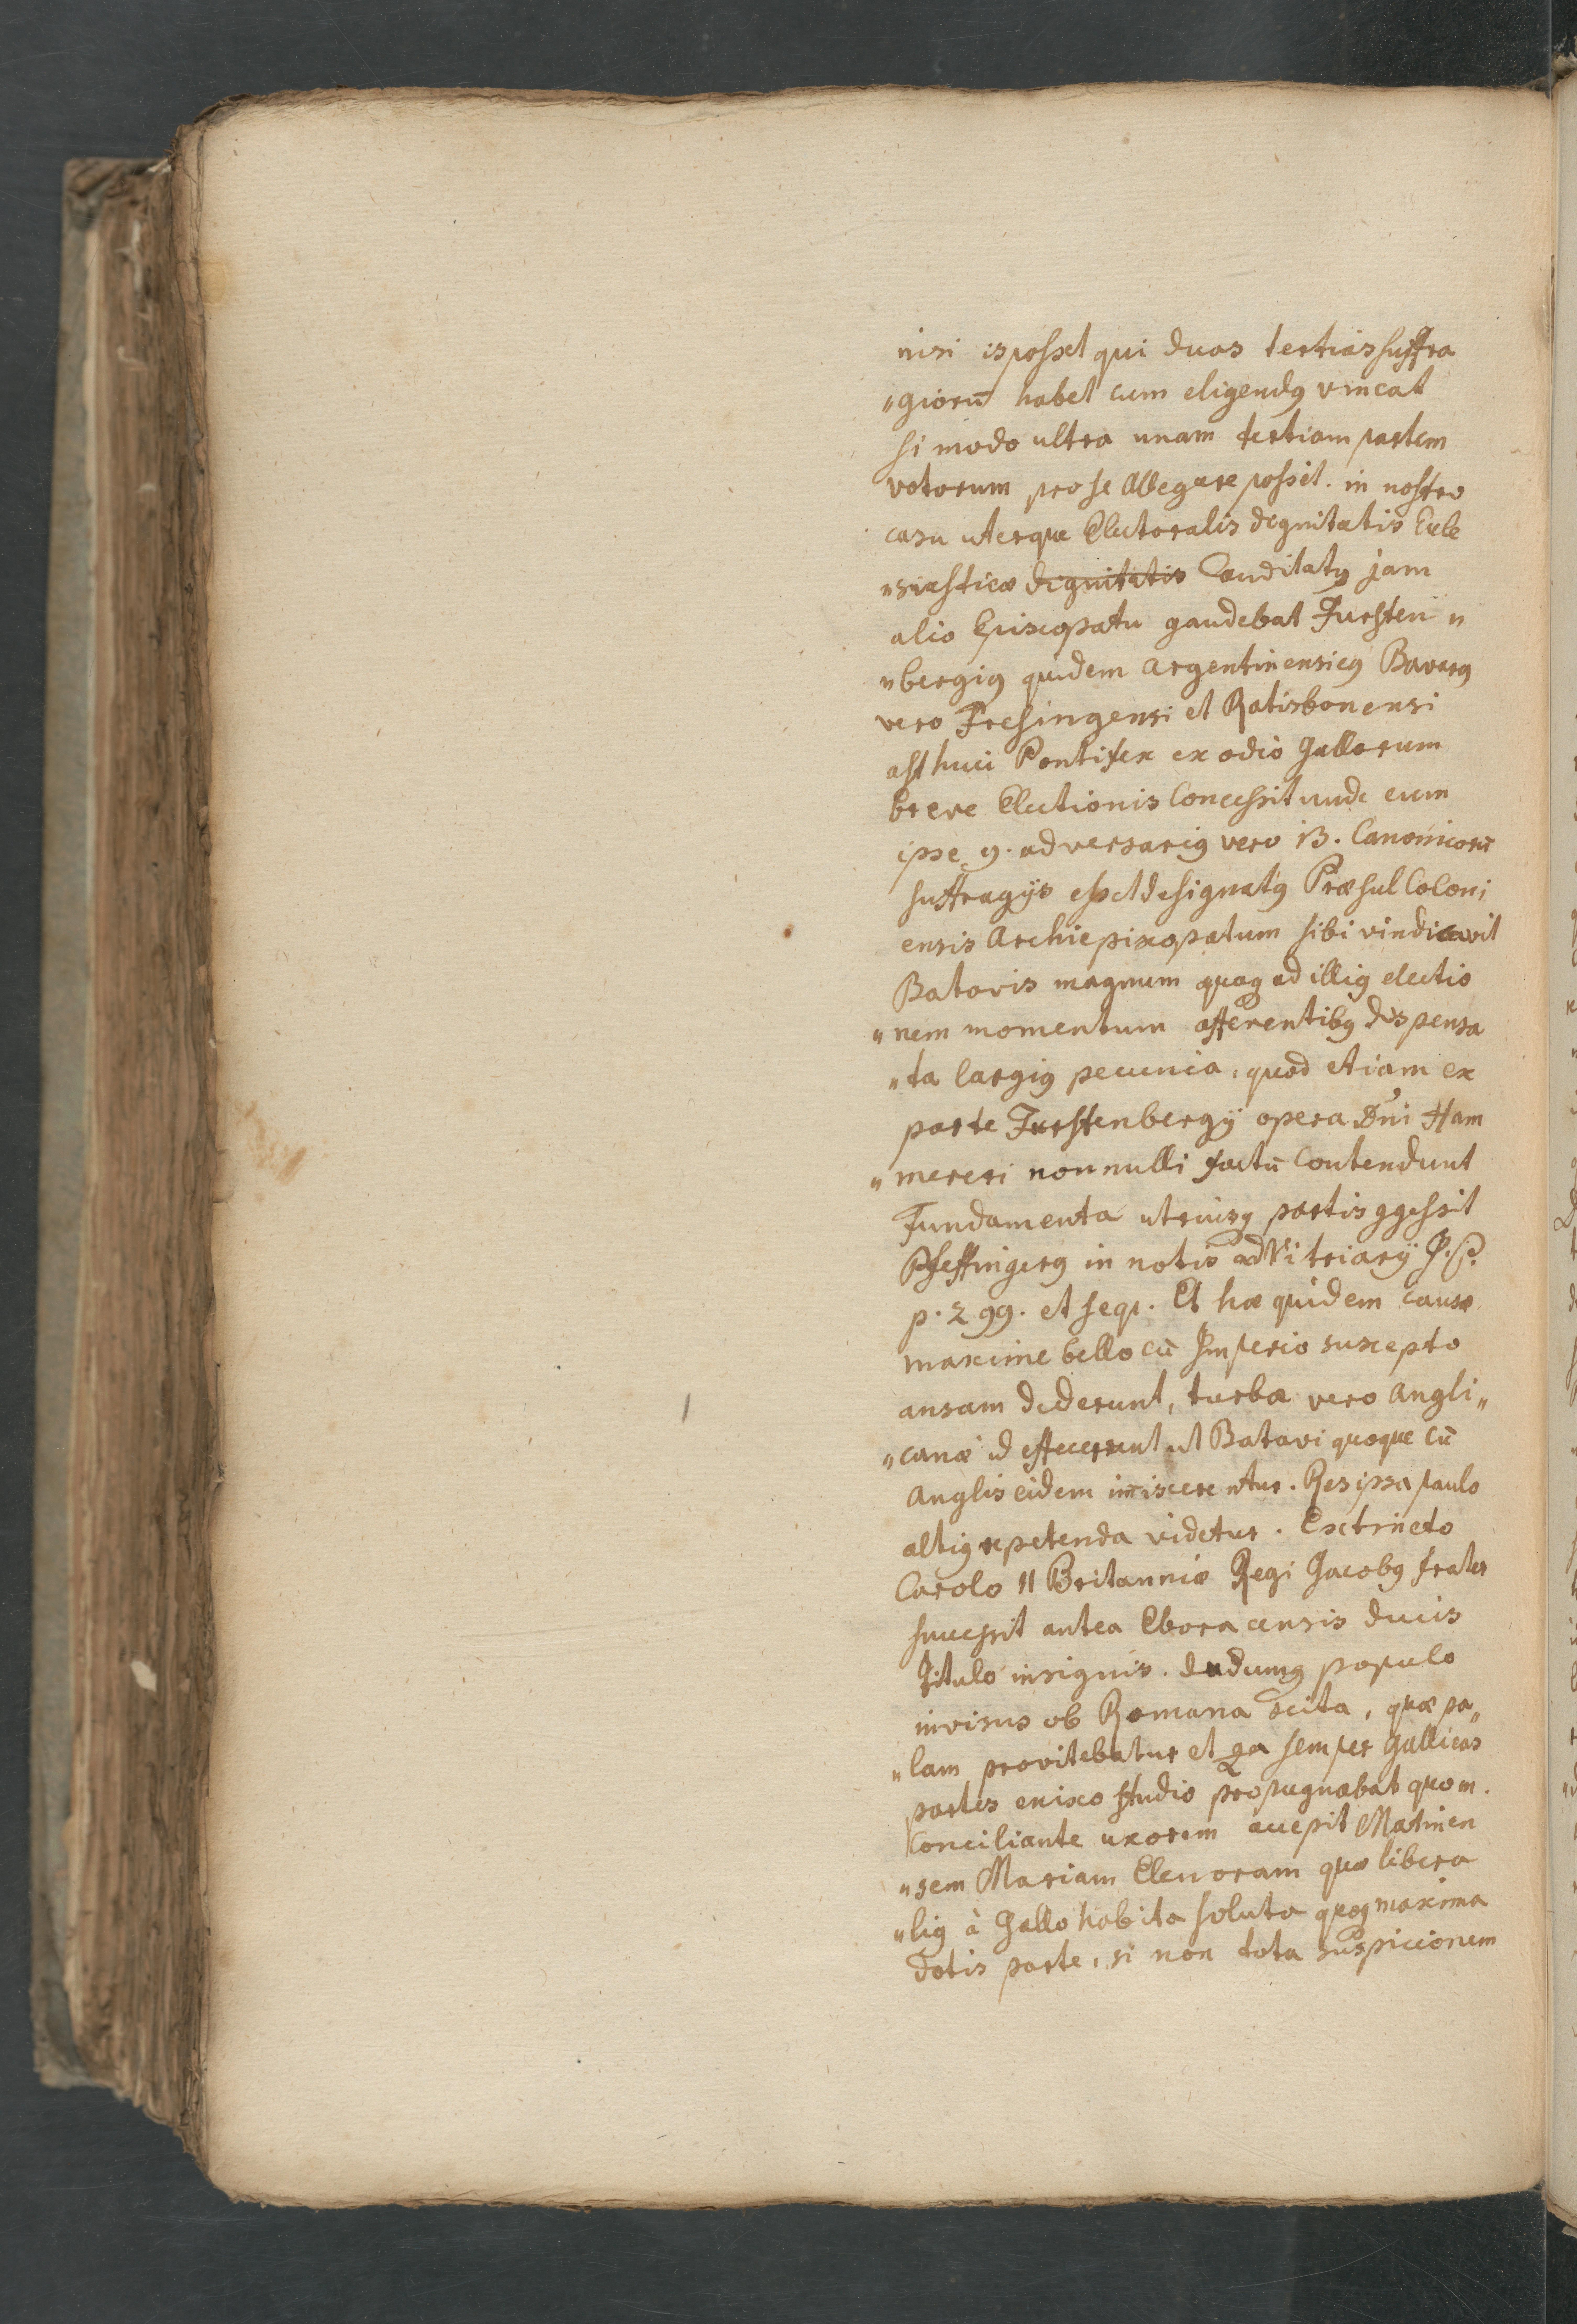 nisi is posset qui duas tertias suffra
"giorū habet cum eligendꝰ vincat
si modo ultra unam tertiam partem
votorum pro se allegare possit. in nostro
casu uterque Electoralis dignitatis Eccle
"siasticæ dignitatis Candidatꝰ jam
alio Episcopatu gaudebat Fursten "
"bergiꝰ quidem Argentinensi eꝰ Bavarꝰ
vero Fresingensi et Ratisbonensi
ast huic Pontifex ex odio Gallorum
breve Electionis Concessit unde cum
ipse 9. adversariꝰ vero 13. Canonicorū
suffragijs esset designatꝰ Præsul Coloni
ensis Archiepiscopatum sibi vindicavit
Batavis magnum quoqꝫ ad illiꝰ electio
"nem momentum afferentibꝰ dispensa
"ta largiꝰ pecunia, quod etiam ex
parte Furstenbergij opera Dñi Ham
"mereri non nulli factū Contendunt
Fundamenta utriusqꝫ partis ꝯgessit
Pfeffingerꝰ in notis ad Vitriarij
p. 299. et seqr. Et hæ quidem causæ
maxime bello cū Imperio suscepto
ansam dederunt, turbæ vero Angli"
"canæ id effecerunt ut Batavi quoque cū
Anglis eidem im̄iscerentur. Res ipsa paulo
altiꝰ repetenda videtur. Exctincto
Carolo II Britanniæ Regi Jacobꝰ frater
successit antea Eboracensis Ducis
Titulo insignis. dudumqꝫ populo
invisus ob Romana scita, quæ pa"
"lam provitebatur et qa semper Gallicas
partes enixo studio propugnabat quom.
Conciliante uxorem accepit Matinen
"sem Mariam Elenoram quæ libera
"liꝰ à Gallo habita soluta quoqꝫ maxima
Dotis parte, si non tota suspiccionem